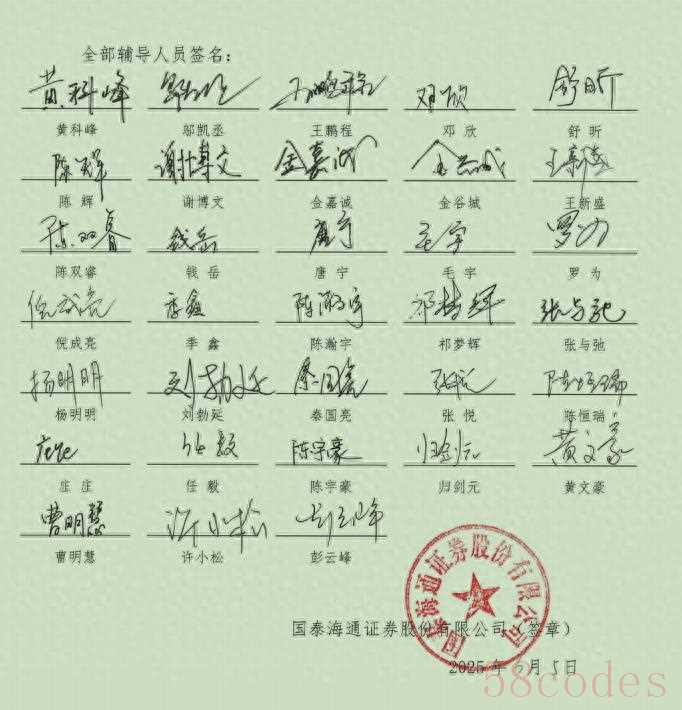 全部辅导人员签名：
黄科峰 邬凯丞 王鹏程 邓欣
黄科峰 邬凯丞 王鹏程 邓 欣 舒 昕
陈辉 谢博文 金嘉诚 金谷城 王新盛
陈 辉 谢博文 金嘉诚 金谷城 王新盛
陈双睿 钱岳 唐宁 毛宇 罗为
陈双睿 钱 岳 唐 宁 毛 宇 罗 为
倪成亮 季鑫 陈瀚宇 祁梦辉 张与弛
倪成亮 季 鑫 陈瀚宇 祁梦辉 张与弛
杨明明 刘勃延 秦国亮 张悦 陈恒瑞
杨明明 刘勃延 秦国亮 张 悦 陈恒瑞
任毅 陈宇豪 归剑元 黄文豪
庄 庄 任 毅 陈宇豪 归剑元 黄文豪
曹明慧 许小松 彭云峰
曹明慧 许小松 彭云峰
国泰海通证券股份有限公司
国泰海通证券股份有限公司（签章）
2025 年 6 月 5 日
58codes